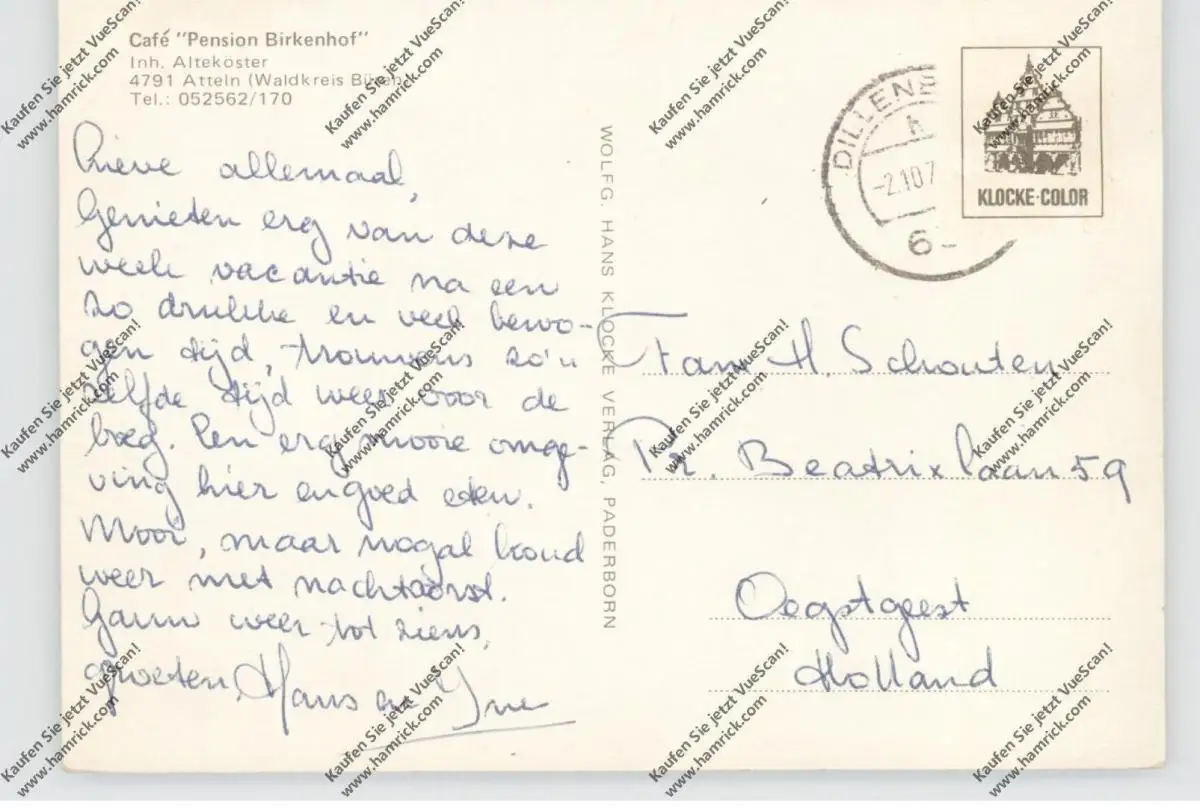 Café "Pension Birkenhof"
Inh. Alteköster
4791 Atteln (Waldkreis Büren)
Tel.: 052562/170
Lieve allemaal,
Genieten erg van deze
week vacantie na een
zo drukke en veel bewo-
gen tijd, trouwens zo'n
zelfde tijd weer voor de
boeg. Een erg mooie omge-
ving hier en goed eten.
Mooi, maar nogal koud
weer met nachtvorst.
Gauw weer tot ziens,
groeten, Hans en Ine
WOLFG. HANS KLOCKE VERLAG, PADERBORN
DILLEN
-2.10.7
6
KLOCKE-COLOR
Fam H. Schouten
Pr. Beatrixlaan 59
Oegstgeest
Holland
Kaufen Sie jetzt VueScan!
www.hamrick.com
Kaufen Sie jetzt VueScan!
www.hamrick.com
Kaufen Sie jetzt VueScan!
www.hamrick.com
Kaufen Sie jetzt VueScan!
www.hamrick.com
Kaufen Sie jetzt VueScan!
www.hamrick.com
Kaufen Sie jetzt VueScan!
www.hamrick.com
Kaufen Sie jetzt VueScan!
www.hamrick.com
Kaufen Sie jetzt VueScan!
www.hamrick.com
Kaufen Sie jetzt VueScan!
www.hamrick.com
Kaufen Sie jetzt VueScan!
www.hamrick.com
Kaufen Sie jetzt VueScan!
www.hamrick.com
Kaufen Sie jetzt VueScan!
www.hamrick.com